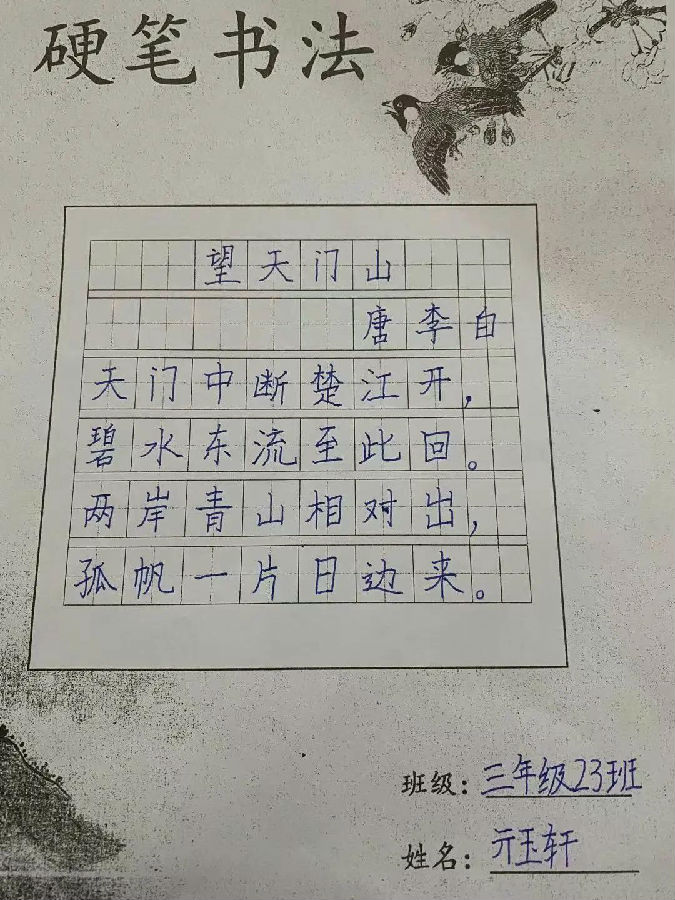 硬笔书法
望天门山
唐李白
天门中断楚江开，
碧水东流至此回。
两岸青山相对出，
孤帆一片日边来。
班级：三年级23班
姓名：亓玉轩